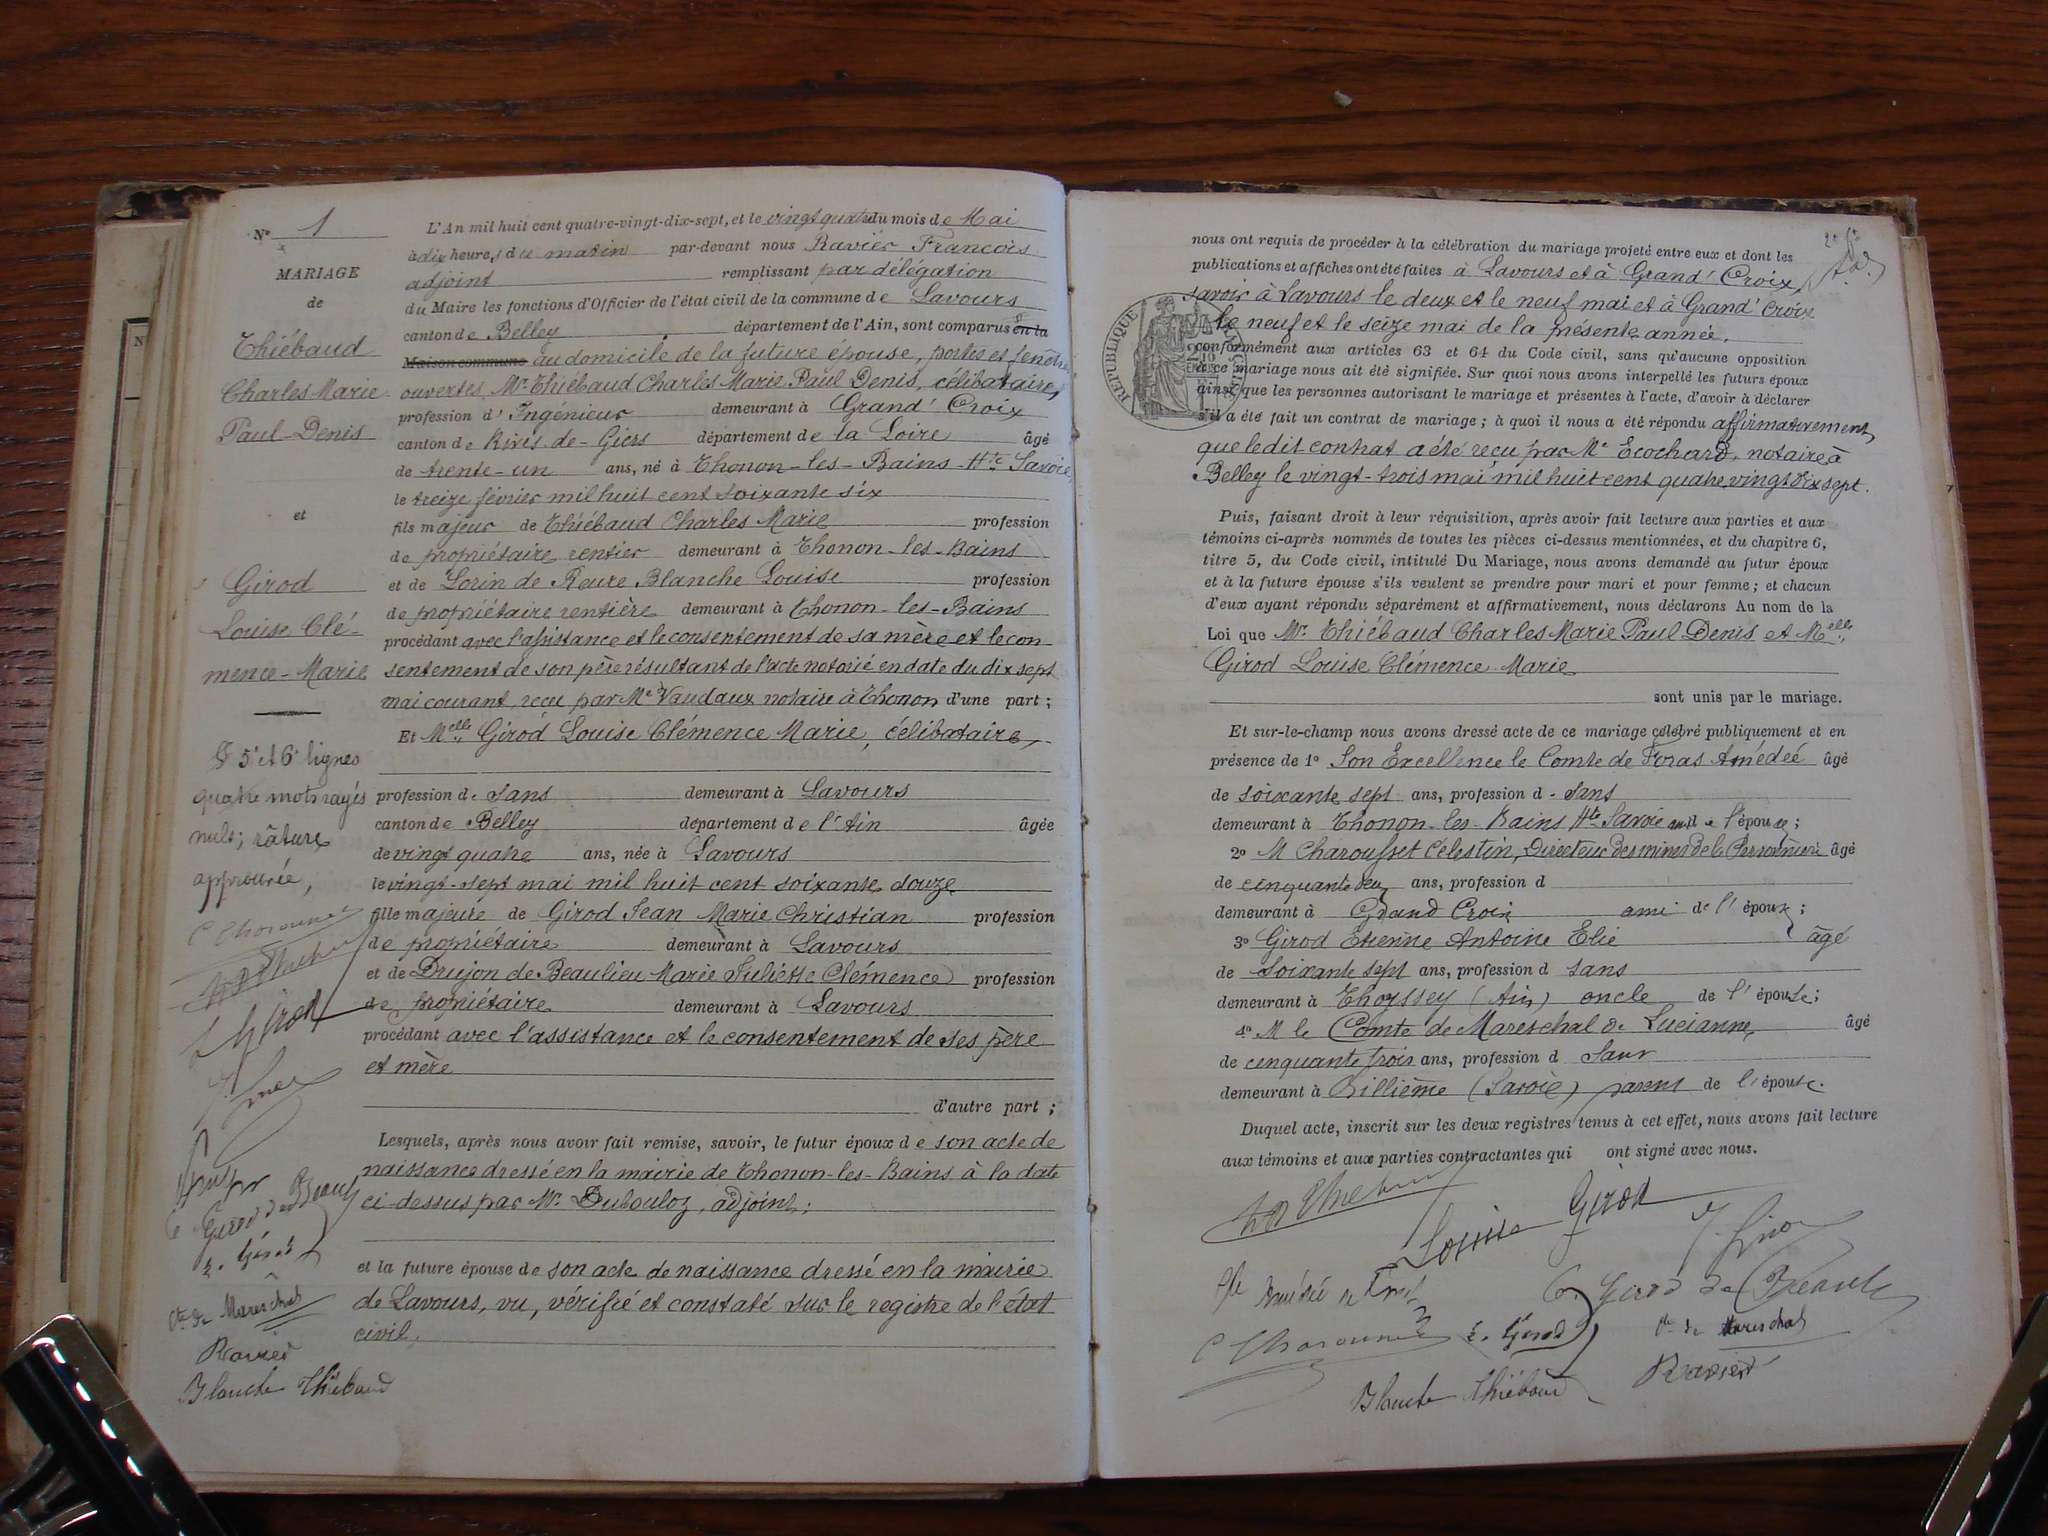 N° 1
MARIAGE
de
Thiébaud
Charles Marie
Paul Denis
et
Girod
Louise Clé-
mence-Marie
5e et 6e lignes
quatre mots rayés
nuls; râture
approuvée,
L Girod
E. Girod
Cte de Mareschal
Ravier
Blanche Thiébaud
L'An mil huit cent quatre-vingt-dix-sept, et le vingt quatre du mois de Mai
à dix heures du matin par-devant nous Ravier François
adjoint remplissant par délégation
du Maire les fonctions d'Officier de l'état civil de la commune de Lavours
canton de Belley département de l'Ain, sont comparus en la
Maison commune au domicile de la future épouse, portes et fenêtres
ouvertes, Mr Thiébaud Charles Marie Paul Denis, célibataire,
profession d'Ingénieur demeurant à Grand' Croix
canton de Rive-de-Giers département de la Loire âgé
de trente-un ans, né à Thonon-les-Bains-Hte Savoie,
le treize février mil huit cent soixante six
fils majeur de Thiébaud Charles Marie profession
de propriétaire rentier demeurant à Thonon-les-Bains
et de Lorin de Reure Blanche Louise profession
de propriétaire rentière demeurant à Thonon-les-Bains
procédant avec l'assistance et le consentement de sa mère et le con-
sentement de son père résultant de l'acte notarié en date du dix sept
mai courant, reçu par Me Vaudaux notaire à Thonon d'une part ;
Et Melle Girod Louise Clémence Marie, célibataire,
profession de sans demeurant à Lavours
canton de Belley département de l'Ain âgée
de vingt quatre ans, née à Lavours
le vingt-sept mai mil huit cent soixante douze
fille majeure de Girod Jean Marie Christian profession
de propriétaire demeurant à Lavours
et de Drujon de Beaulieu Marie Juliette Clémence profession
de propriétaire demeurant à Lavours
procédant avec l'assistance et le consentement de ses père
et mère
d'autre part ;
Lesquels, après nous avoir fait remise, savoir, le futur époux de son acte de
naissance dressé en la mairie de Thonon-les-Bains à la date
ci-dessus par Mr Dubouloz, adjoint ;
et la future épouse de son acte de naissance dressé en la mairie
de Lavours, vu, vérifié et constaté sur le registre de l'état
civil.
nous ont requis de procéder à la célébration du mariage projeté entre eux et dont les
publications et affiches ont été faites à Lavours et à Grand' Croix,
savoir à Lavours le deux et le neuf mai et à Grand' Croix
le neuf et le seize mai de la présente année.
RÉPUBLIQUE FRANÇAISE
conformément aux articles 63 et 64 du Code civil, sans qu'aucune opposition
à ce mariage nous ait été signifiée. Sur quoi nous avons interpellé les futurs époux
ainsi que les personnes autorisant le mariage et présentes à l'acte, d'avoir à déclarer
s'il a été fait un contrat de mariage ; à quoi il nous a été répondu affirmativement,
que le dit contrat a été reçu par Me Ecochard, notaire à
Belley le vingt-trois mai mil huit cent quatre vingt dix sept.
Puis, faisant droit à leur réquisition, après avoir fait lecture aux parties et aux
témoins ci-après nommés de toutes les pièces ci-dessus mentionnées, et du chapitre 6,
titre 5, du Code civil, intitulé Du Mariage, nous avons demandé au futur époux
et à la future épouse s'ils veulent se prendre pour mari et pour femme ; et chacun
d'eux ayant répondu séparément et affirmativement, nous déclarons Au nom de la
Loi que Mr Thiébaud Charles Marie Paul Denis et Melle
Girod Louise Clémence Marie
sont unis par le mariage.
Et sur-le-champ nous avons dressé acte de ce mariage célébré publiquement et en
présence de 1° Son Excellence le Comte de Foras Amédée âgé
de soixante sept ans, profession d. sans
demeurant à Thonon-les-Bains Hte Savoie ami de l'épouse ;
2° M Charousset Célestin, Directeur des mines de la Péronnière âgé
de cinquante deux ans, profession d
demeurant à Grand Croix ami de l'époux ;
3° Girod Etienne Antoine Elie âgé
de soixante sept ans, profession d sans
demeurant à Thoissey (Ain) oncle de l'épouse ;
4° M le Comte de Mareschal de Lucianne âgé
de cinquante trois ans, profession d Sans
demeurant à Billième (Savoie) parent de l'épouse.
Duquel acte, inscrit sur les deux registres tenus à cet effet, nous avons fait lecture
aux témoins et aux parties contractantes qui ont signé avec nous.
Louise Girod
E. Girod
Cte de Mareschal
Blanche Thiébaud
Ravier